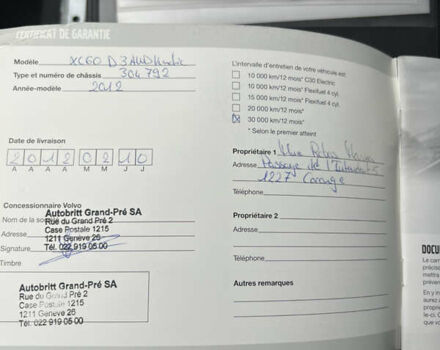 CERTIFICAT DE GARANTIE
Modèle XC60 D3 AWD
Type et numéro de châssis 304792
Année-modèle 2012
Date de livraison
2 0 1 2 0 2 1 0
A A A A M M J J
Concessionnaire Volvo
Nom de la
Adresse
Signature
Timbre
Autobritt Grand-Pré SA
Rue du Grand Pré 2
Case Postale 1215
1211 Genève 26
Tél. 022 919 05 00
Autobritt Grand-Pré SA
Rue du Grand Pré 2
Case Postale 1215
1211 Genève 26
Tél. 022 919 05 00
L'intervalle d'entretien de votre véhicule est:
10 000 km/12 mois* C30 Electric
10 000 km/12 mois* Flexifuel 4 cyl.
15 000 km/12 mois* Flexifuel 4 cyl.
20 000 km/12 mois*
30 000 km/12 mois*
* Selon le premier atteint
Propriétaire 1
Adresse Passage de
1227 Carouge
Téléphone
Propriétaire 2
Adresse
Téléphone
Autres remarques
DOCU
Le carn
précise
mettra
préven
En y in
aurez a
proprié
le-ci. C
que vo